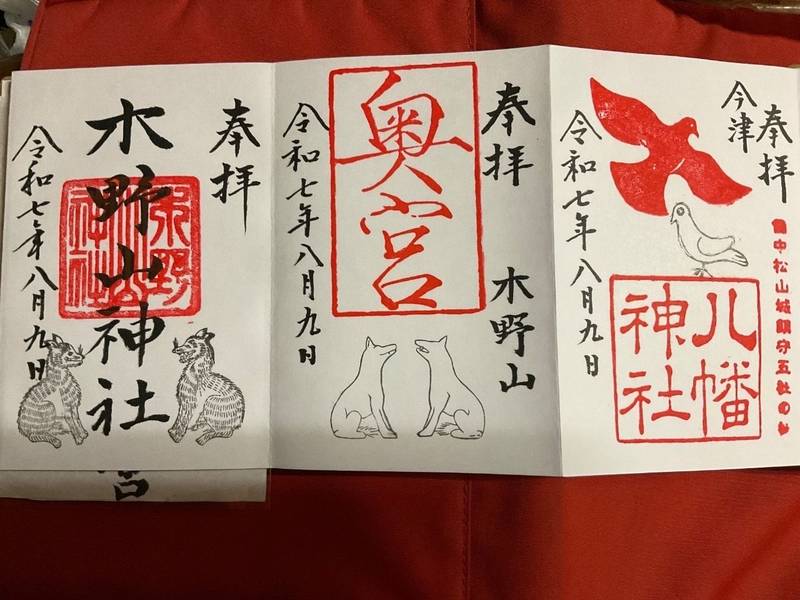 今津
奉拝
備中松山城鎮守五社の
八幡
神社
令和七年八月九日
奉拝
木野山
奥宮
令和七年八月九日
奉拝
木野山神社
木野
山
神社
令和七年八月九日
宮